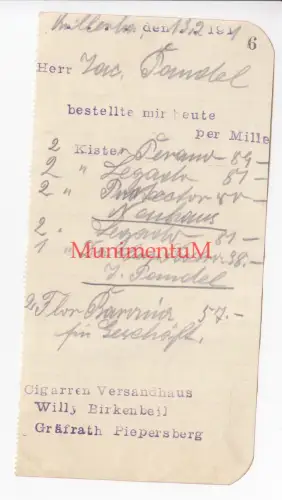 den 13.2 1911
6
Herr Jac. Tamdel
bestellte mir heute
per Mille
2 Kisten Perano 84.-
2 " Legado 81.-
2 " Protector 80.-
Neuhaus
2 " Legado 81.-
1 " 38.-
MunimentuM
J. Tamdel
2 Flor 57.-
für Geschäft.
Cigarren Versandhaus
Willy Birkenbeil
Gräfrath Piepersberg